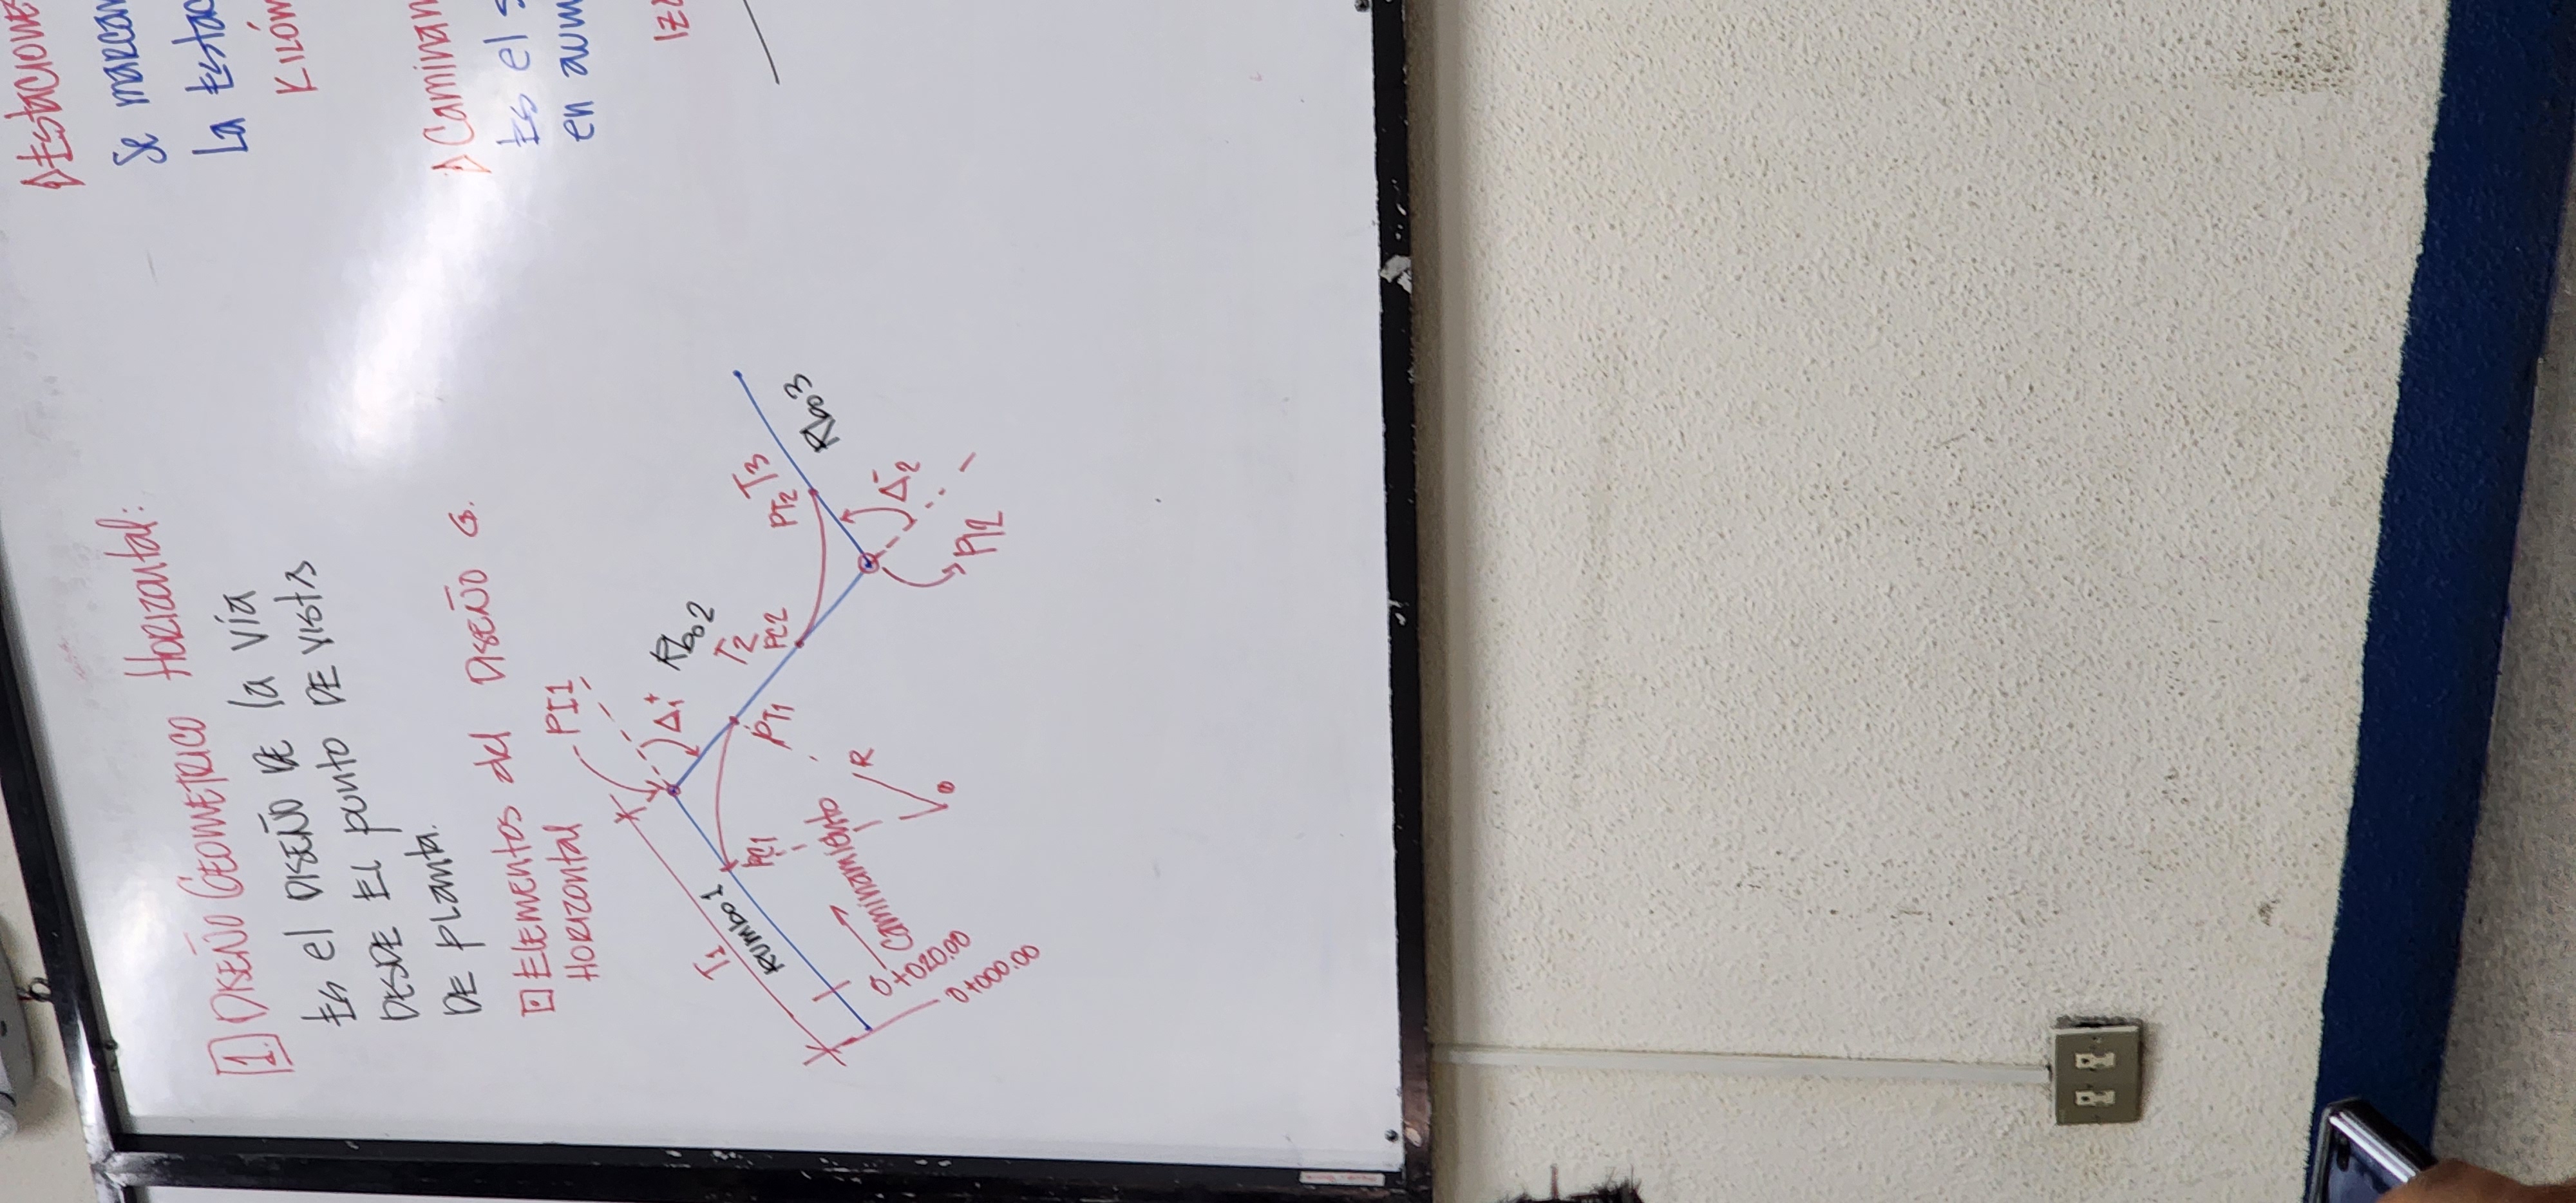 1. DISEÑO GEOMETRICO Horizontal:
Es el DISEÑO DE la vía
DESDE EL punto DE vista
DE planta.
Elementos del DISEÑO G.
Horizontal
PI1
Δ1+
Rbo2
T1
Rumbo1
PC1
PT1
T2
PC2
PT2
T3
Rbo3
Caminamiento
R
Δ2-
PI2
0+020.00
0+000.00
Estaciones
Se marcan
La Estac
Kilóm
Caminam
Es el s
en aum
Iz